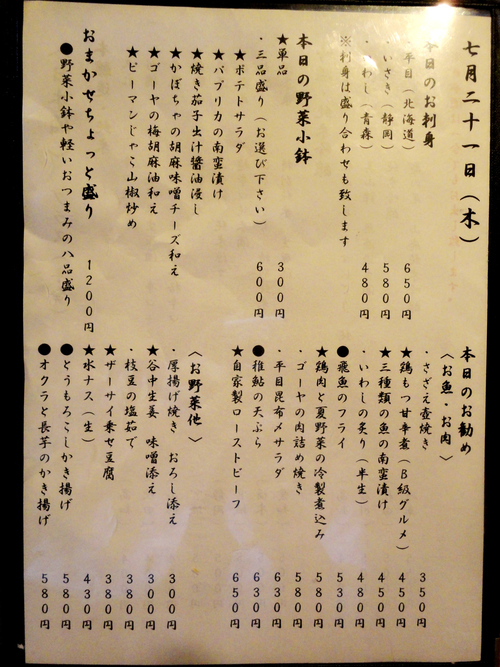 七月二十一日（木）
本日のお刺身
・平目（北海道） 650円
・いさき（静岡） 580円
・いわし（青森） 480円
※刺身は盛り合わせも致します
本日の野菜小鉢
★単品 300円
・三品盛り（お選び下さい） 600円
★ポテトサラダ
★パプリカの南蛮漬け
★焼き茄子出汁醤油浸し
★かぼちゃの胡麻味噌チーズ和え
★ゴーヤの梅胡麻油和え
★ピーマンじゃこ山椒炒め
おまかせちょっと盛り 1200円
●野菜小鉢や軽いおつまみの八品盛り
本日のお勧め
〈お魚・お肉〉
・さざえ壺焼き 350円
★鶏もつ甘辛煮（B級グルメ） 450円
★三種類の魚の南蛮漬け 450円
・いわしの炙り（半生） 480円
●飛魚のフライ 530円
★鶏肉と夏野菜の冷製煮込み 580円
・ゴーヤの肉詰め焼き 580円
・平目昆布〆サラダ 630円
●稚鮎の天ぷら 630円
★自家製ローストビーフ 650円
〈お野菜他〉
・厚揚げ焼き おろし添え 300円
★谷中生姜 味噌添え 300円
・枝豆の塩茹で 380円
★ザーサイ乗せ豆腐 380円
★水ナス（生） 430円
●とうもろこしかき揚げ 580円
●オクラと長芋のかき揚げ 580円